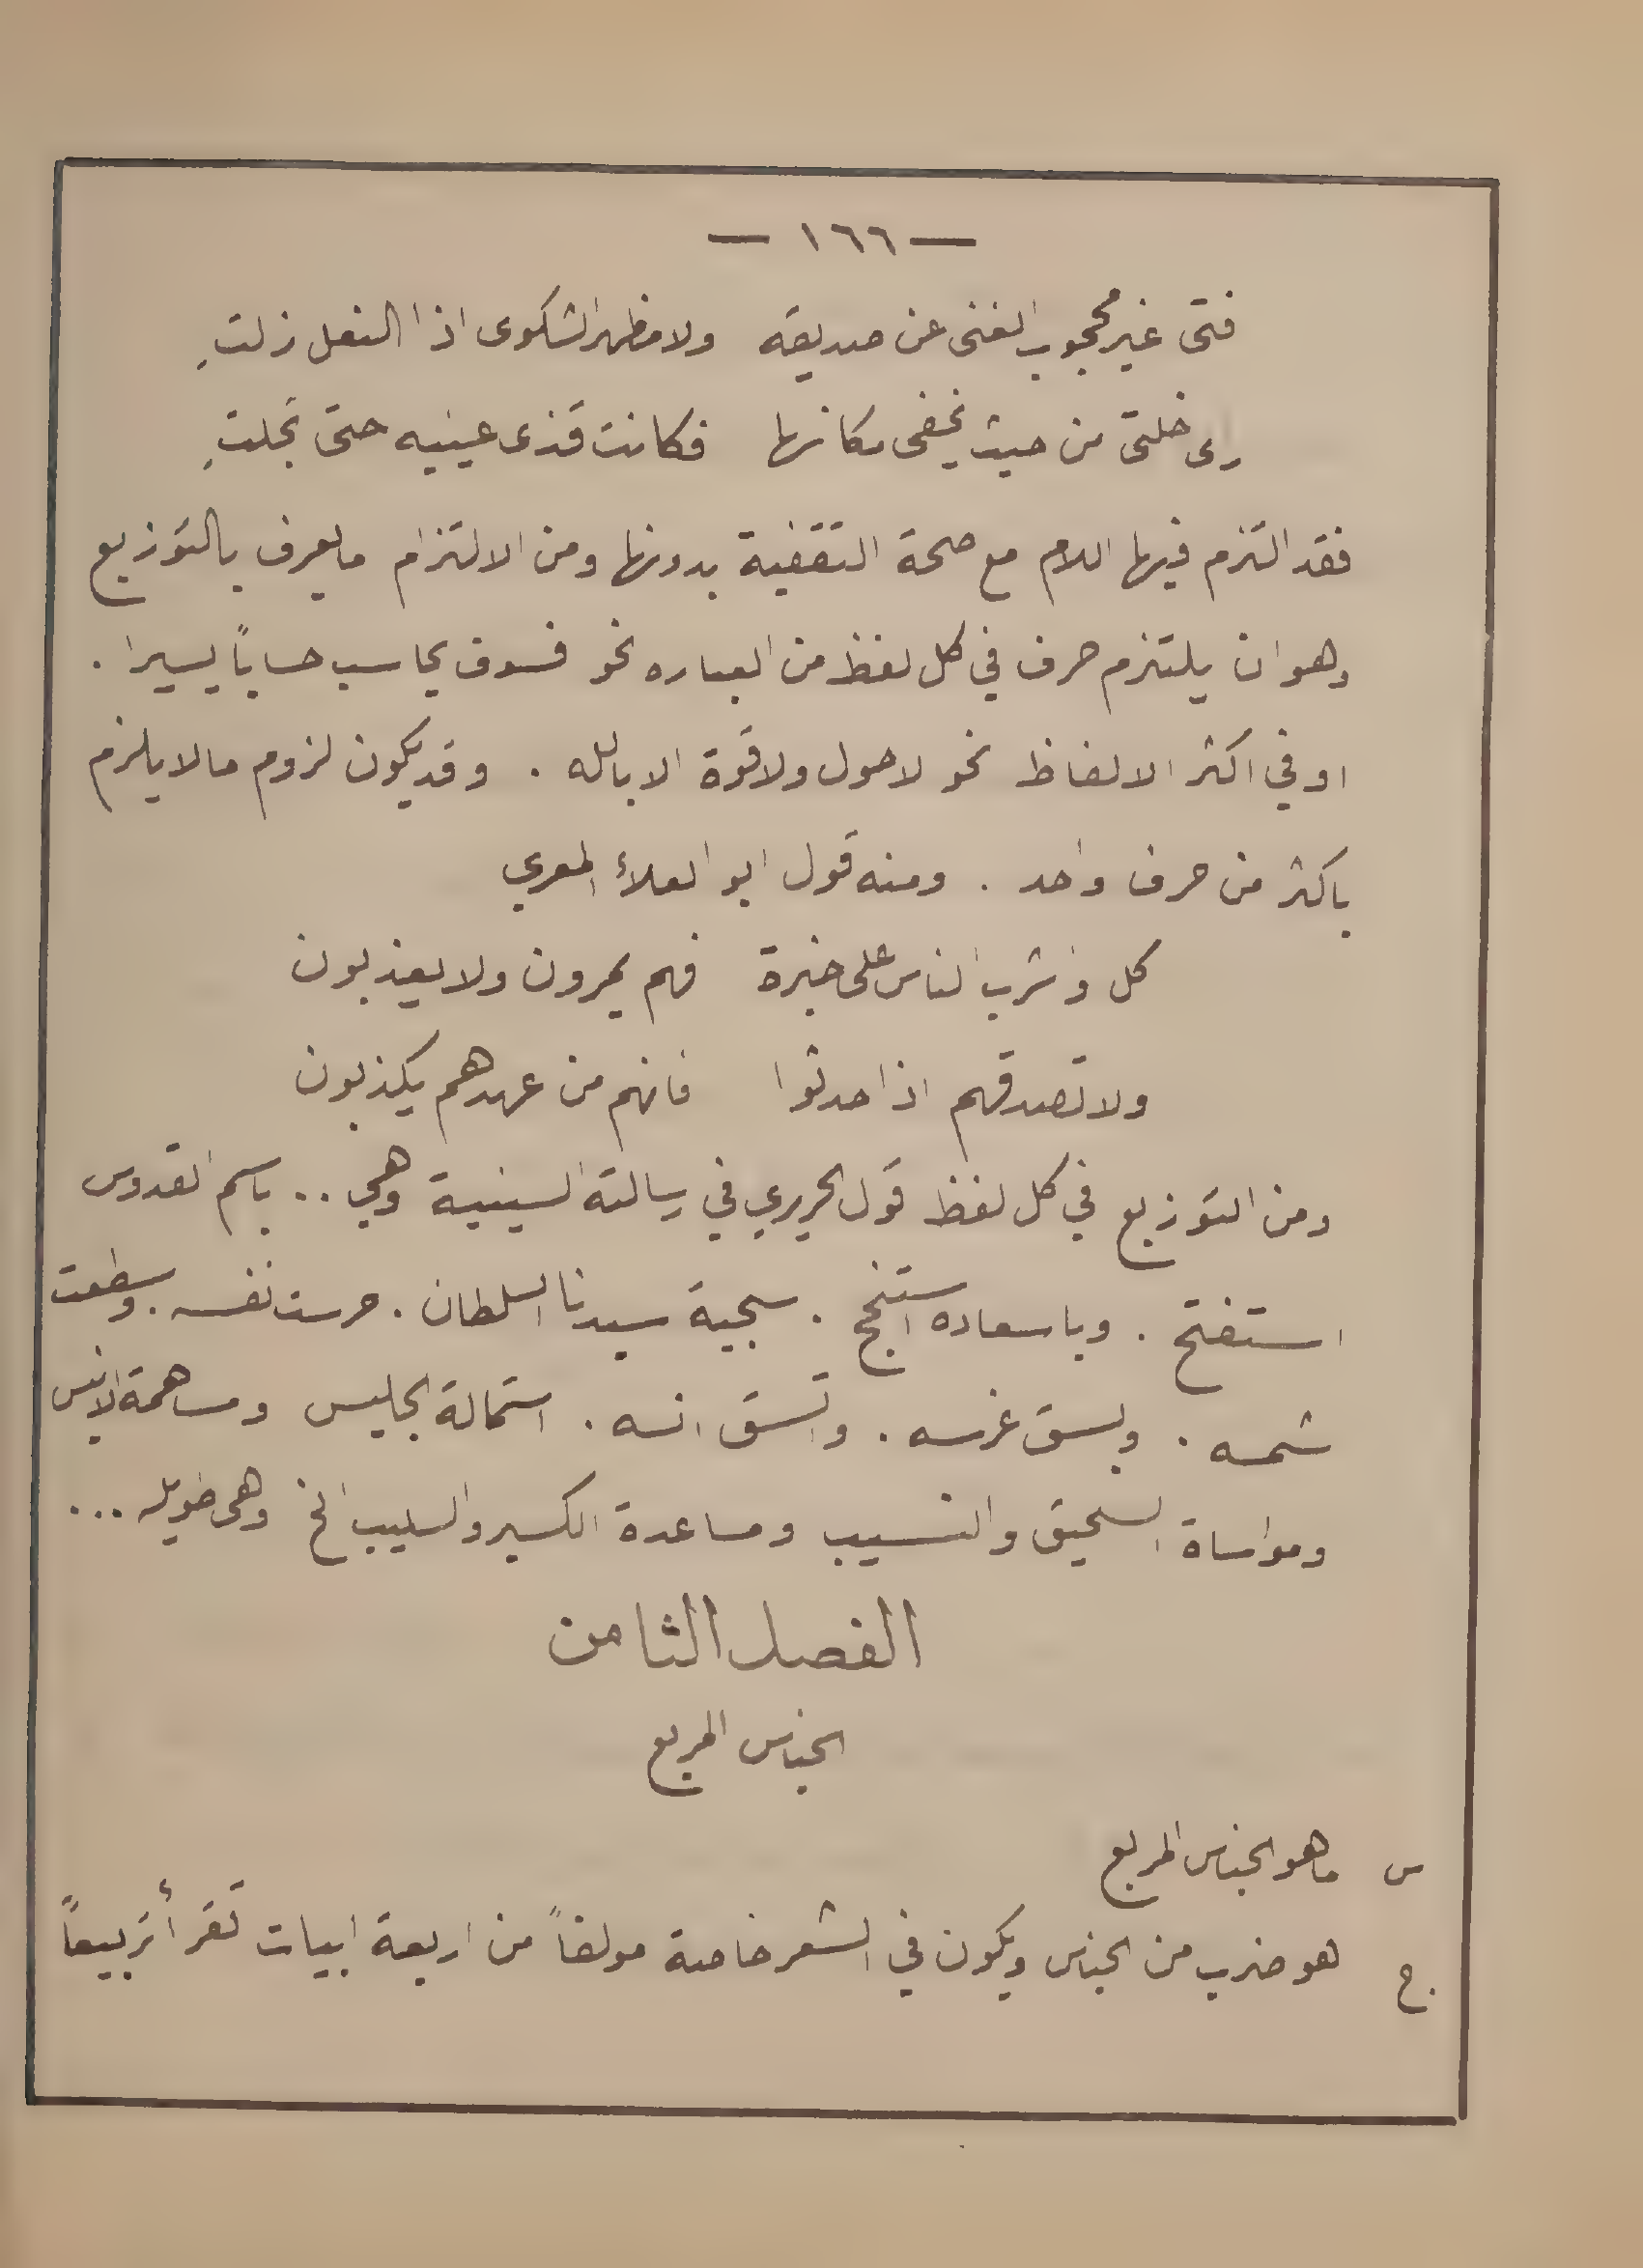 — ١٦٦ —
فتى غير محجوب الغنى عن صديقه ولا مظهر الشكوى اذا النعل زلتِ
رى خلتي من حيث يخفى مكانها فكانت قذى عينيه حتى تجلتِ
فقد التزم فيها اللام مع صحة التقفية بدونها ومن الالتزام ما يعرف بالتوزيع
وهو ان يلتزم حرف في كل لفظ من العباره نحو فسوف يحاسب حساباً يسيرا .
او في اكثر الالفاظ نحو لا حول ولا قوة الا بالله . وقد يكون لزوم ما لا يلزم
باكثر من حرف واحد . ومنه قول ابو العلاء المعري
كل واشرب الناس على خبرة فهم يمرون ولا يعذبون
ولا تصدقهم اذا حدثوا فانهم من عهدهم يكذبون
ومن التوزيع في كل لفظ قول الحريري في رسالته السينية وهي .. باسم القدوس
استفتح . وباسعاده استنجح . سجية سيدنا السلطان . حرست نفسه . وسطعت
شمسه . وبسق غرسه . واتسق انسه . استمالة الجليس ومساهمة الانيس
ومواساة السحيق والنسيب ومساعدة الكسير والسليب الخ وهى طويله ...
الفصل الثامن
الجناس المربع
س ما هو الجناس المربع
ج هو ضرب من الجناس ويكون في الشعر خاصة مولفاً من اربعة ابيات تقرأ تربيعاً